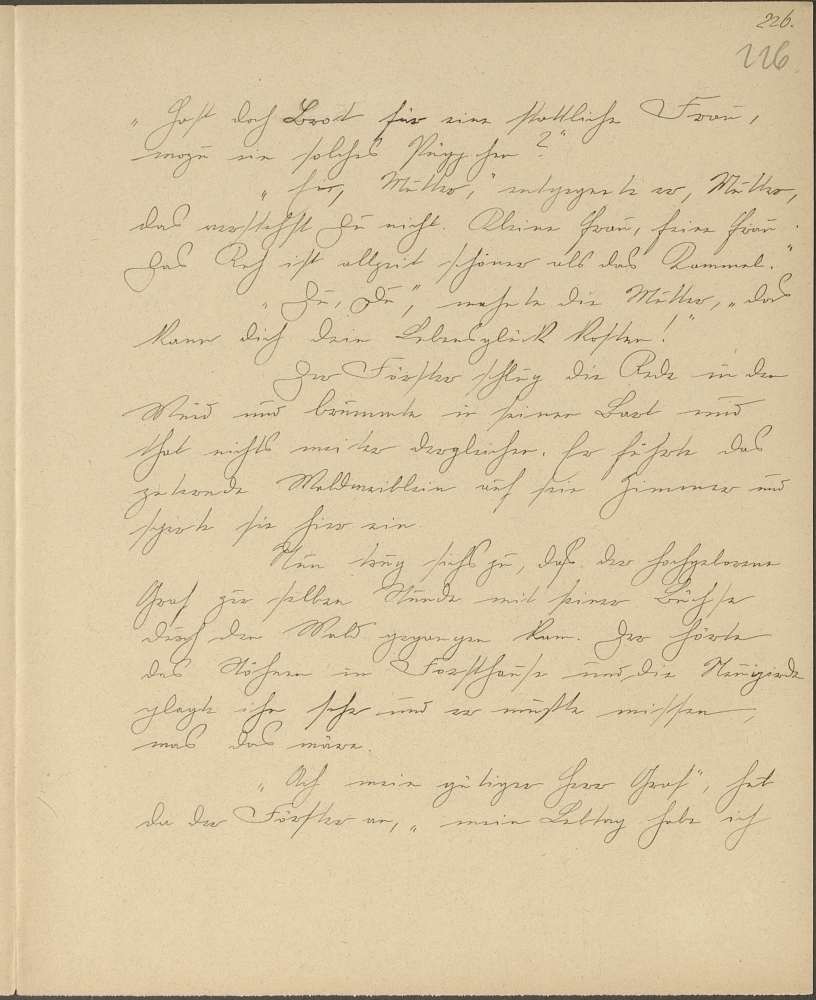 226.
226
"Hast doch Brot für eine stattliche Frau,
wozu ein solches Püppchen?"
"He, Mutter," entgegnete er, Mutter,
das verstehst Du nicht. Kleine Frau, feine Frau.
Das Reh ist allzeit schöner als das Kammel."
"Du, Du", mahnte die Mutter, "das
kann dich dein Lebensglück kosten!"
Der Förster schlug die Rede in den
Wind und brummte in seinen Bart und
that nichts weiter dergleichen. Er führte das
zeternde Waldweiblein auf sein Zimmer und
sperrte sie hier ein.
Nun trug sichs zu, daß der hochgeborene
Graf zur selben Stunde mit seiner Büchse
durch den Wald gegangen kam. Der hörte
das Stöhnen im Forsthause und die Neugierde
plagte ihn sehr und er mußte wissen,
was das wäre.
"Ach mein gütiger Herr Graf", hub
da der Förster an, "mein Lebtag habe ich